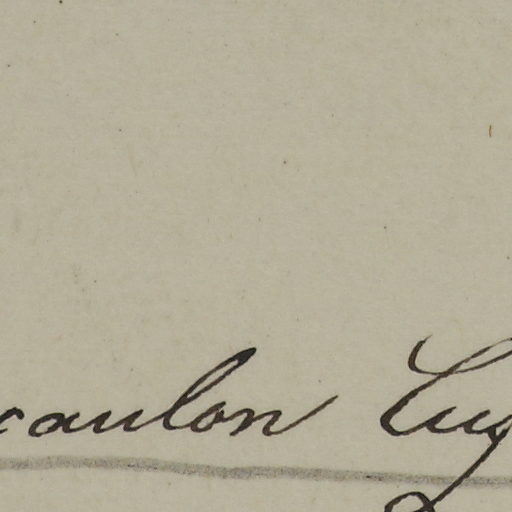 caulon Eug